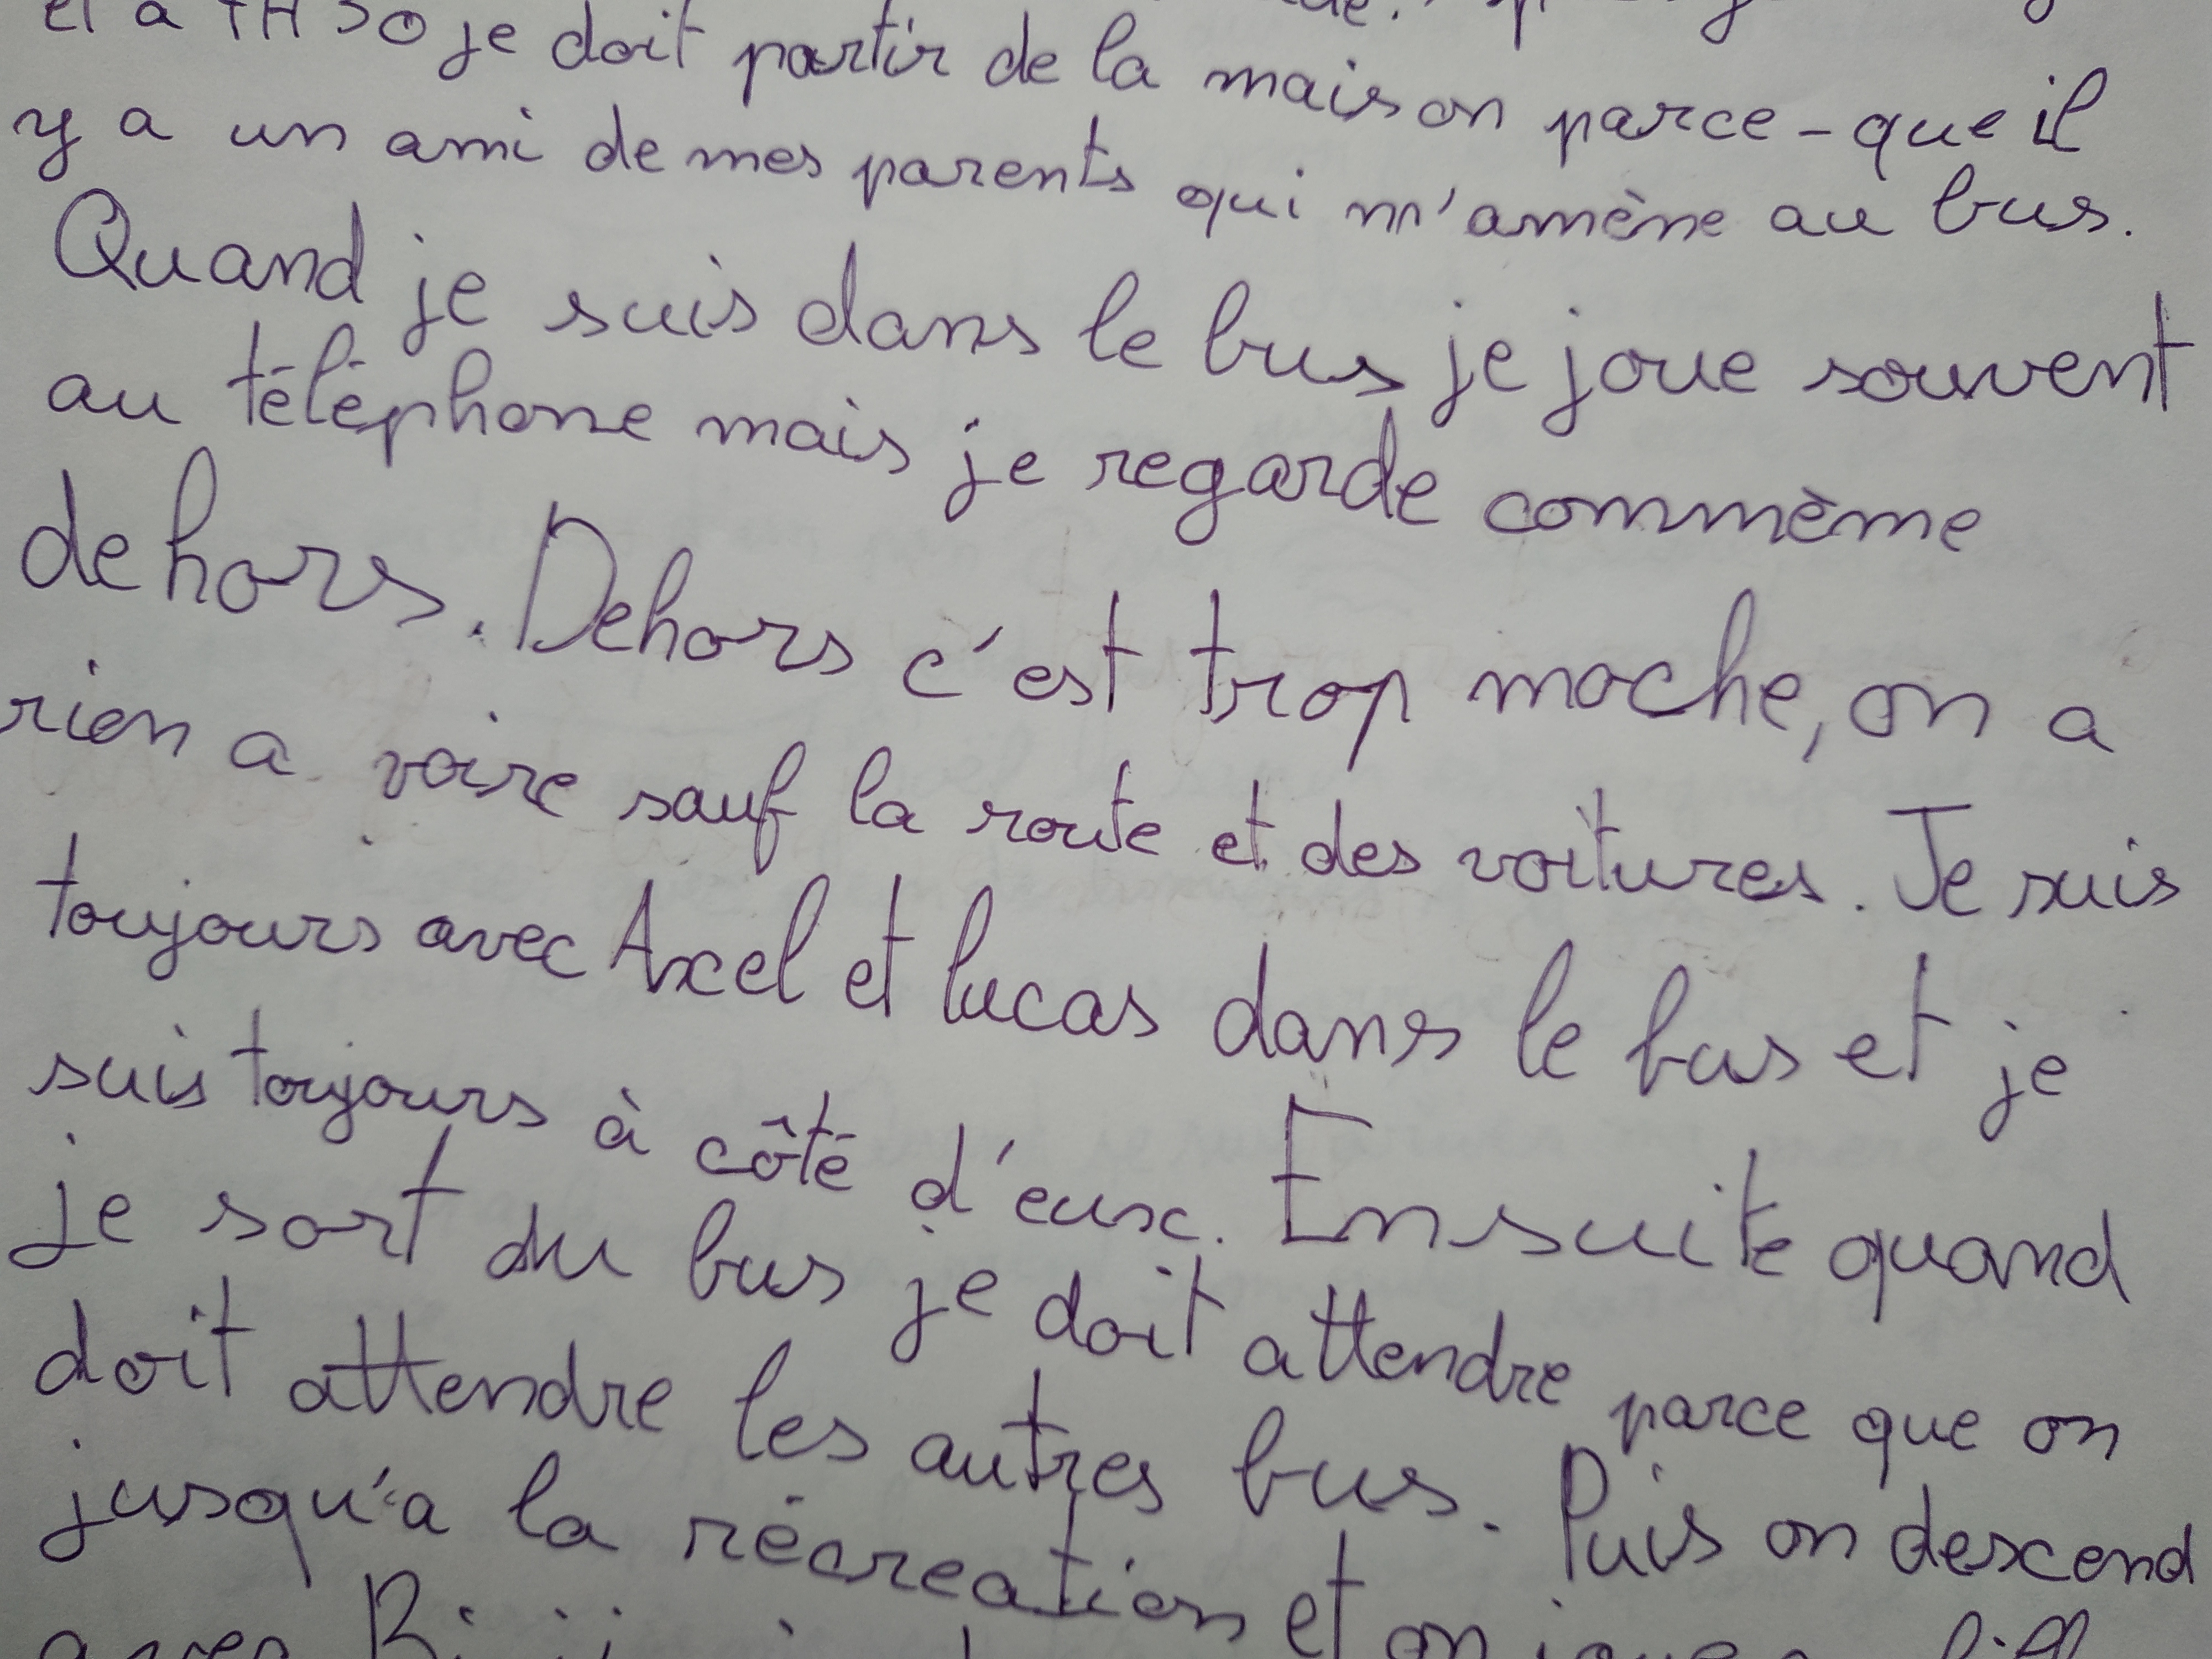 je doit partir de la maison parce-que il
y a un ami de mes parents qui m'amène au bus.
Quand je suis dans le bus je joue souvent
au téléphone mais je regarde commème
dehors. Dehors c'est trop moche, on a
rien a voire sauf la route et des voitures. Je suis
toujours avec Axel et lucas dans le bus et je
suis toujours à côté d'eux. Ensuite quand
je sort du bus je doit attendre parce que on
doit attendre les autres bus. Puis on descend
jusqu'a la récreation et on